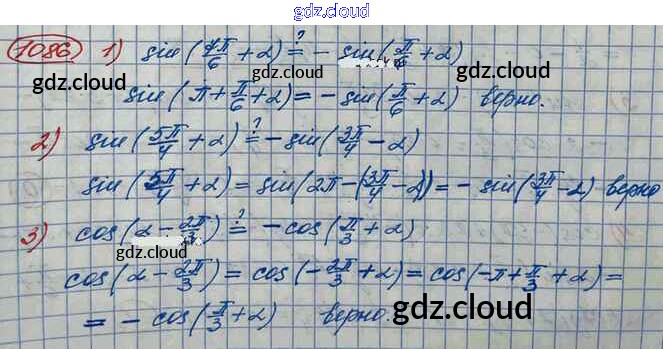 gdz.cloud
1086 1) sin(7π/6 + α) ?= - sin(π/6 + α)
gdz.cloud
gdz.cloud
sin(π + π/6 + α) = - sin(π/6 + α) верно.
2) sin(5π/4 + α) ?= - sin(3π/4 - α)
gdz.cloud
sin(5π/4 + α) = sin(2π - (3π/4 - α)) = - sin(3π/4 - α) верно
3) cos(α - 2π/3) ?= - cos(π/3 + α)
gdz.cloud
cos(α - 2π/3) = cos(-2π/3 + α) = cos(-π + π/3 + α) =
= - cos(π/3 + α) верно.
gdz.cloud
gdz.cloud